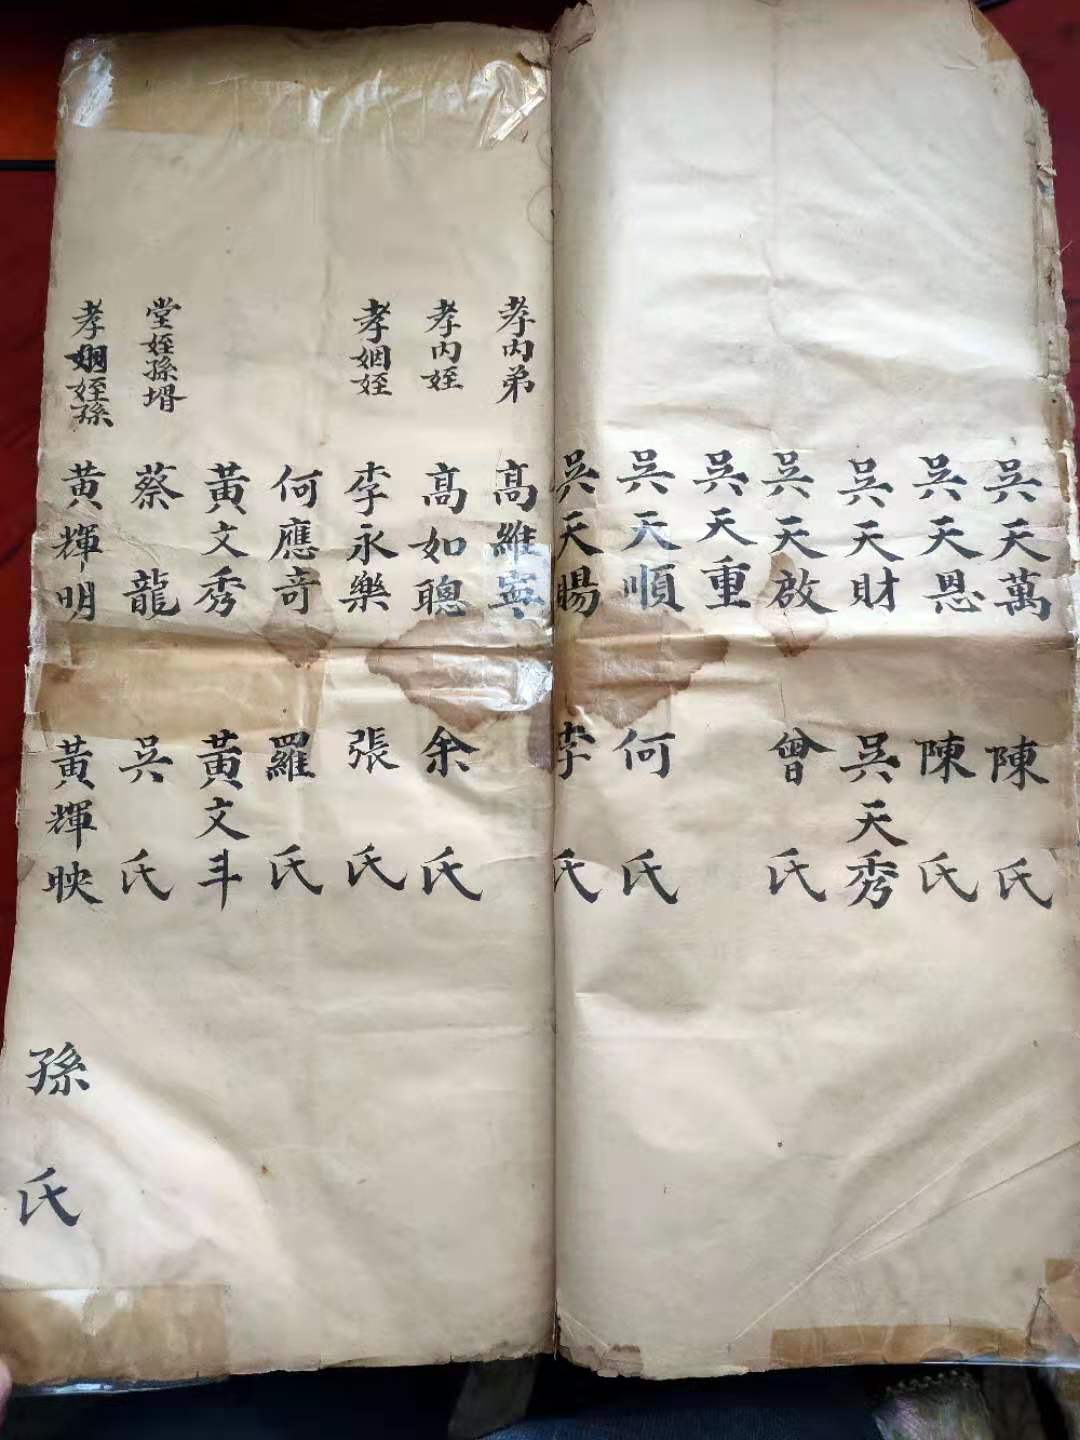 吳天萬 陳氏
吳天恩 陳氏
吳天財 吳天秀
吳天啟 曾氏
吳天重
吳天順 何氏
吳天賜 李氏
孝內弟 高維寧
孝內姪 高如聰 余氏
孝姻姪 李永樂 張氏
何應奇 羅氏
黃文秀 黃文斗
堂姪孫壻 蔡龍 吳氏
孝姻姪孫 黃輝明 黃輝映 孫氏